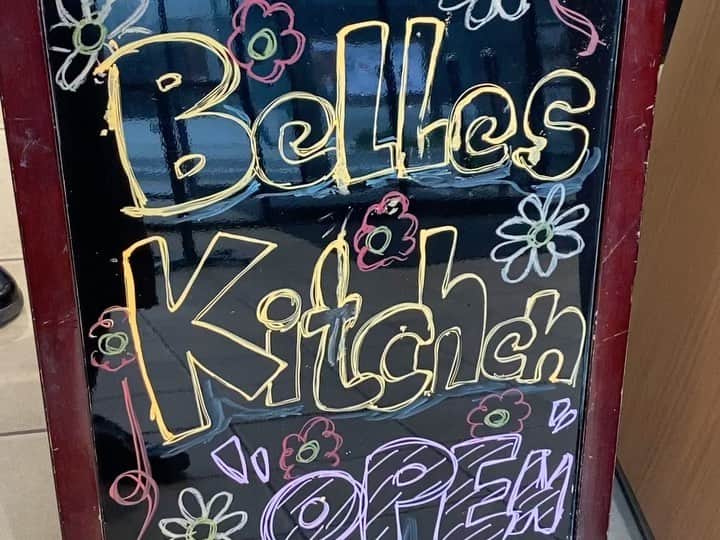 Belles
Kitchch
OPEN